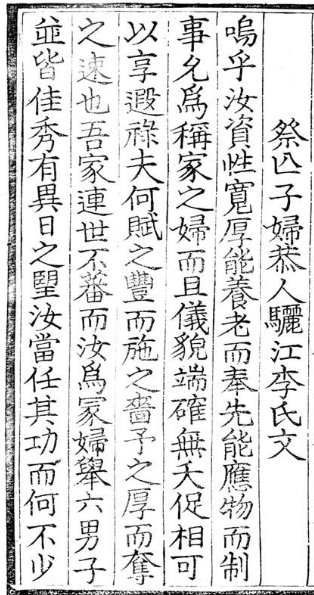 祭亡子婦恭人驪江李氏文
嗚乎汝資性寬厚能養老而奉先能應物而制
事允爲稱家之婦而且儀貌端確無夭促相可
以享遐祿夫何賦之豐而施之嗇予之厚而奪
之速也吾家連世不蕃而汝爲冢婦舉六男子
並皆佳秀有異日之望汝當任其功而何不少